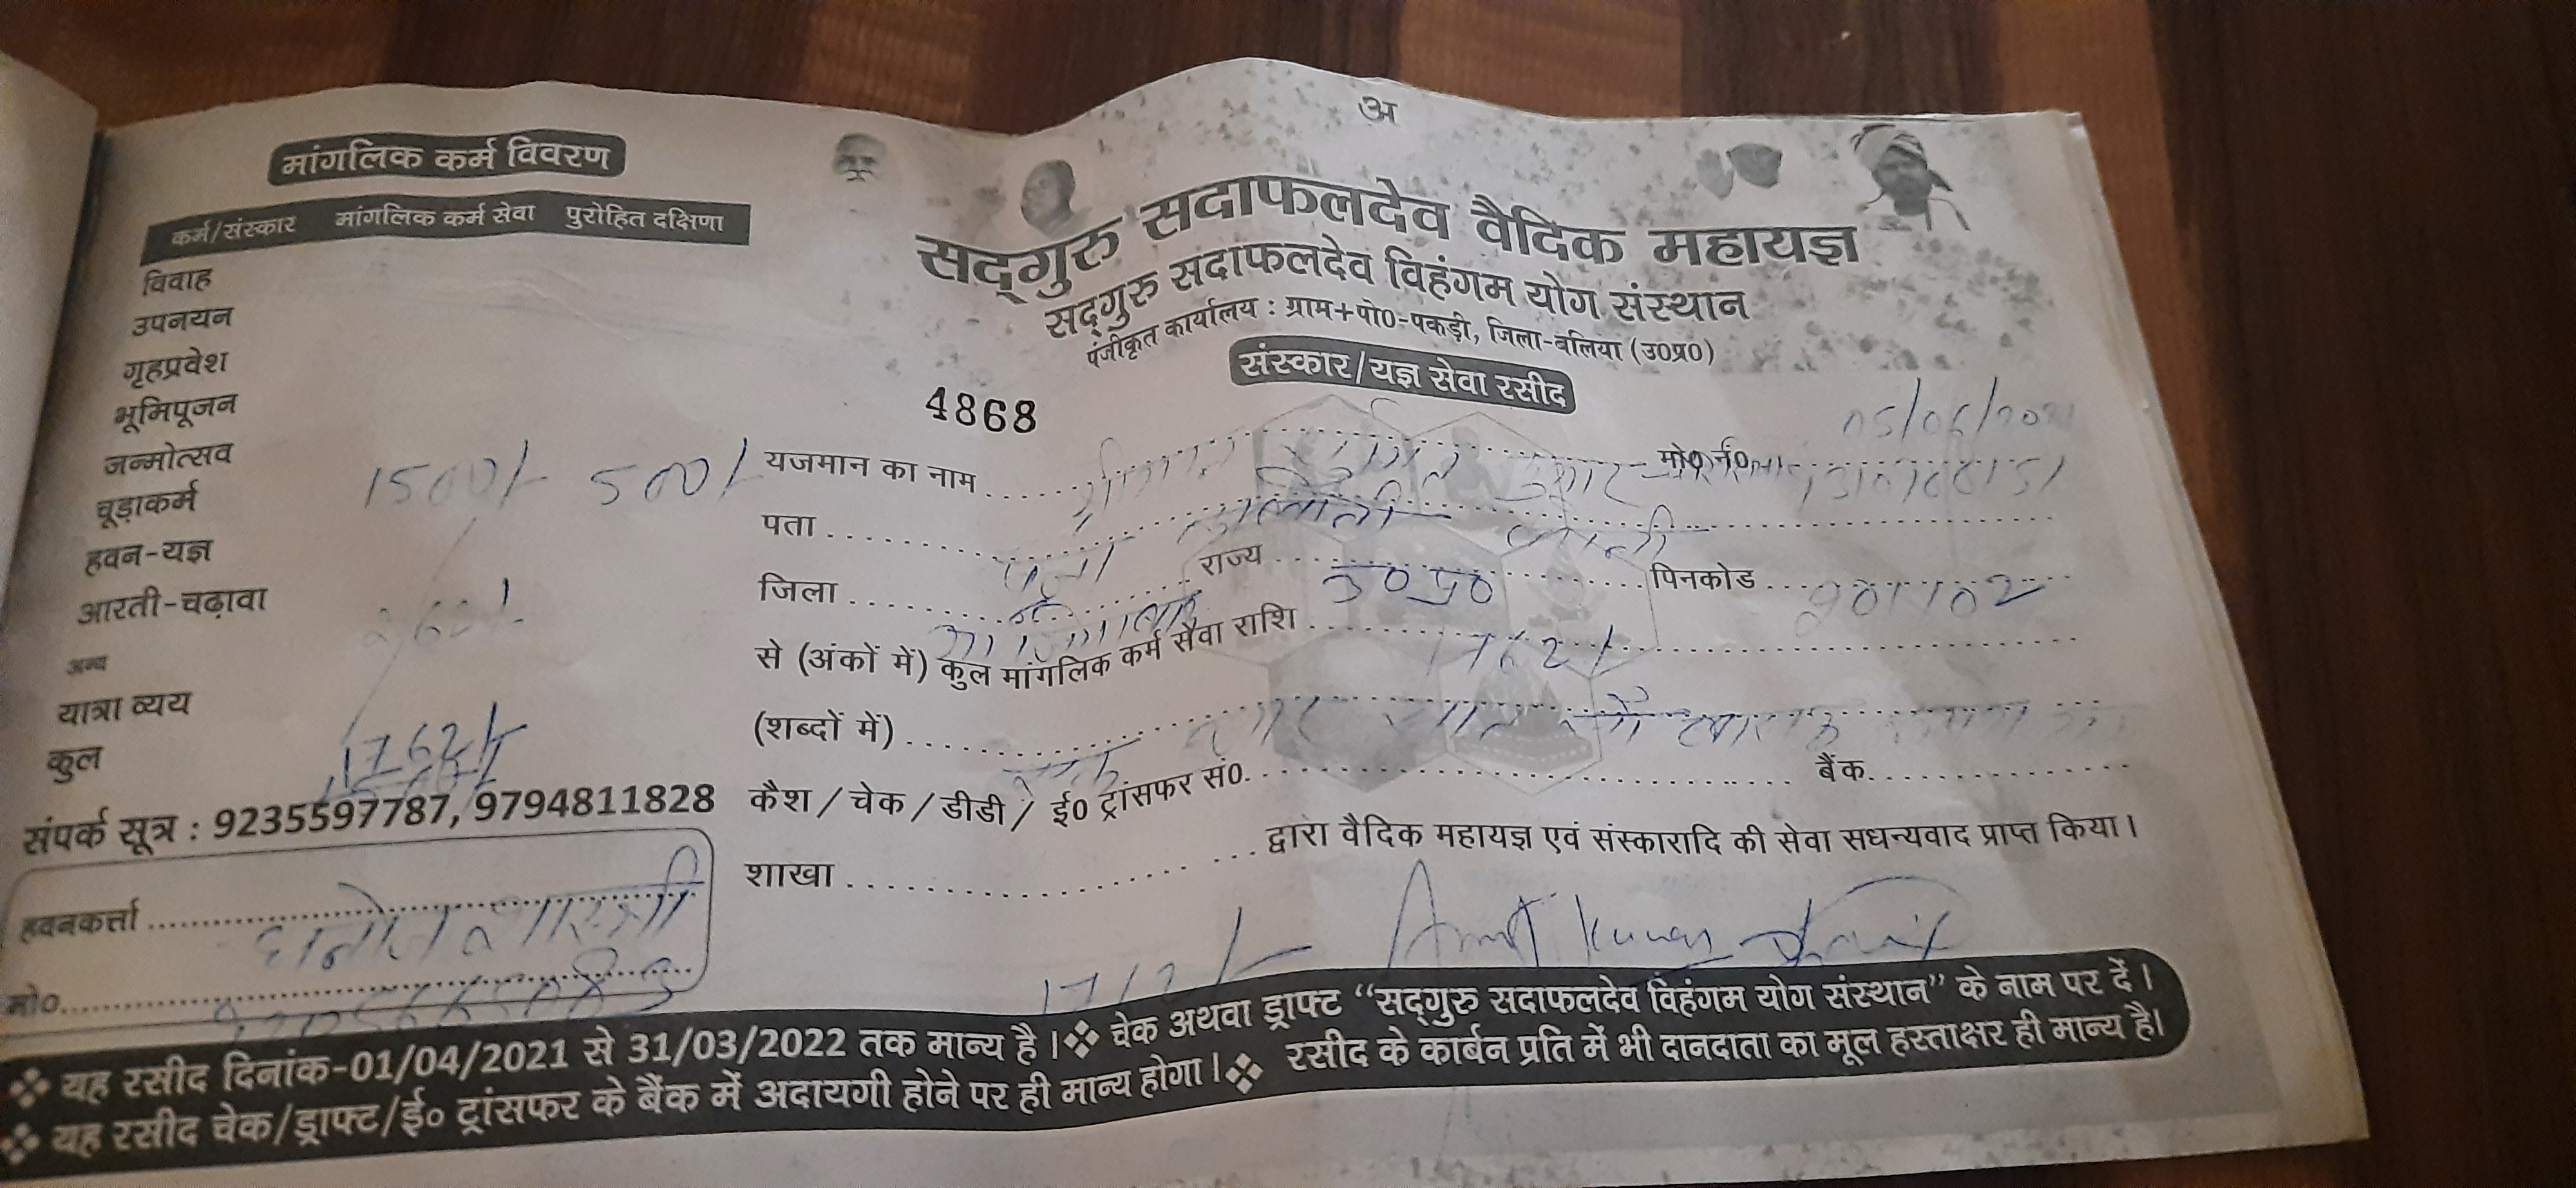 अ
मांगलिक कर्म विवरण
कर्म/संस्कार मांगलिक कर्म सेवा पुरोहित दक्षिणा
विवाह
उपनयन
गृहप्रवेश
भूमिपूजन
जन्मोत्सव
चूड़ाकर्म 1500/- 500/-
हवन-यज्ञ
आरती-चढ़ावा
अन्य
यात्रा व्यय
कुल 1762/-
संपर्क सूत्र : 9235597787, 9794811828
हवनकर्त्ता शास्त्री
मो०
सद्गुरु सदाफलदेव वैदिक महायज्ञ
सद्गुरु सदाफलदेव विहंगम योग संस्थान
पंजीकृत कार्यालय : ग्राम+पो0-पकड़ी, जिला-बलिया (उ0प्र0)
संस्कार/यज्ञ सेवा रसीद
4868 05/06/2021
यजमान का नाम कुमार मो० नं०
पता
जिला राज्य उ0प्र0 पिनकोड 201102
से (अंकों में) कुल मांगलिक कर्म सेवा राशि 1762/-
(शब्दों में) एक हजार सात सौ
कैश / चेक / डीडी / ई0 ट्रांसफर सं0. बैंक.
शाखा द्वारा वैदिक महायज्ञ एवं संस्कारादि की सेवा सधन्यवाद प्राप्त किया।
Amit Kumar
❖ यह रसीद दिनांक-01/04/2021 से 31/03/2022 तक मान्य है। ❖ चेक अथवा ड्राफ्ट “सद्गुरु सदाफलदेव विहंगम योग संस्थान” के नाम पर दें।
❖ यह रसीद चेक/ड्राफ्ट/ई० ट्रांसफर के बैंक में अदायगी होने पर ही मान्य होगा। ❖ रसीद के कार्बन प्रति में भी दानदाता का मूल हस्ताक्षर ही मान्य है।